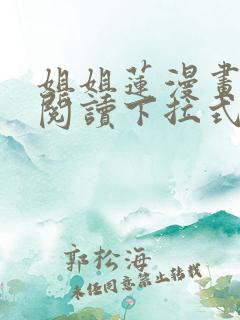 姐姐蓮漫畫
閱讀下拉式
郭松海
未经同意禁止转载